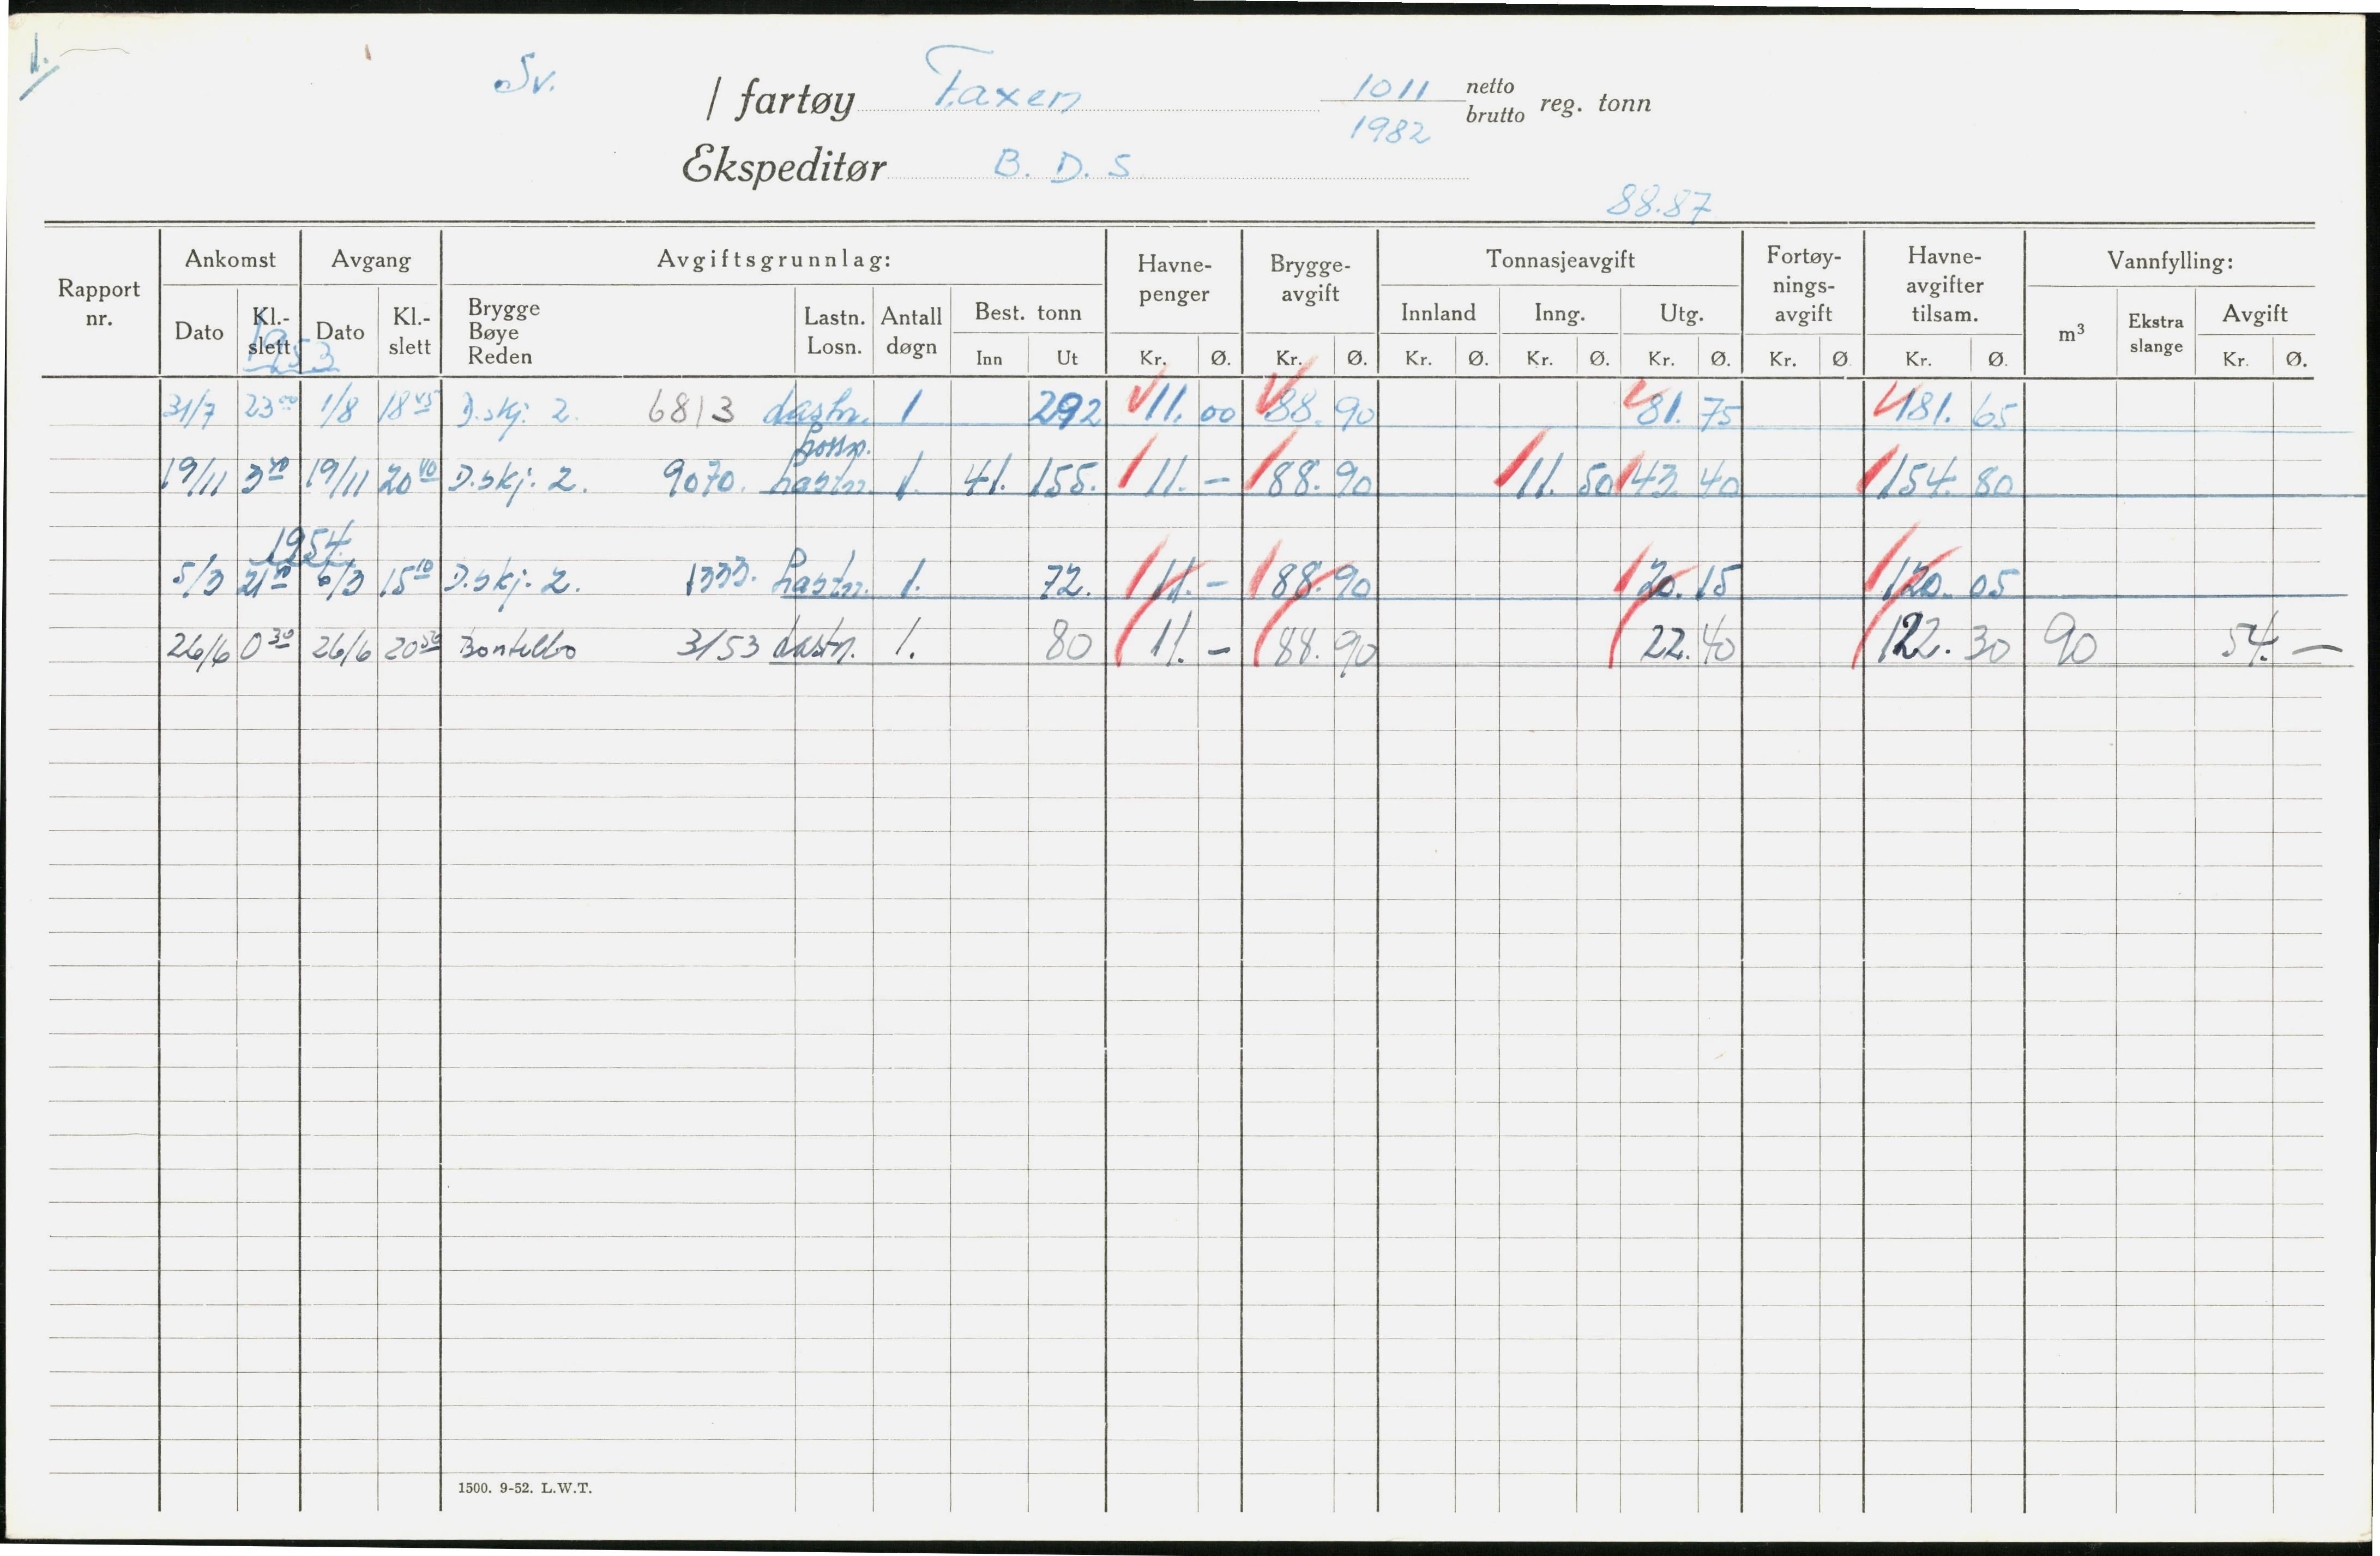 1.
Sv. / fartøy Faxen 1011 netto
1982 brutto reg. tonn
Ekspeditør B. D. S
88.87
Rapport nr. Ankomst Avgang Avgiftsgrunnlag: Havne-penger Brygge-avgift Tonnasjeavgift Fortøy-nings-avgift Havne-avgifter tilsam. Vannfylling:
Dato Kl.-slett Dato Kl.-slett Brygge Bøye Reden Lastn. Losn. Antall døgn Best. tonn Innland Inng. Utg. m³ Ekstra slange Avgift
Inn Ut Kr. Ø. Kr. Ø. Kr. Ø. Kr. Ø. Kr. Ø. Kr. Ø Kr. Ø. Kr. Ø.
1953
31/7 23 00 1/8 18 45 D.skj. 2. 6813 Lastn. 1 292 11. 00 88. 90 81. 75 181. 65
Lossn.
19/11 3 19/11 20 40 D.skj. 2. 9070. Lastn. 1. 41. 155. 11. - 88. 90 11. 50 43. 40 154. 80
1954
5/3 21 6/3 15 10 D.skj. 2. 1333. Lastn. 1. 72. 11. - 88. 90 20. 15 120. 05
26/6 0 30 26/6 20 Bontelabo 3153 Lastn. 1. 80 11. - 88. 90 22. 40 122. 30 90 54. —
1500. 9-52. L.W.T.